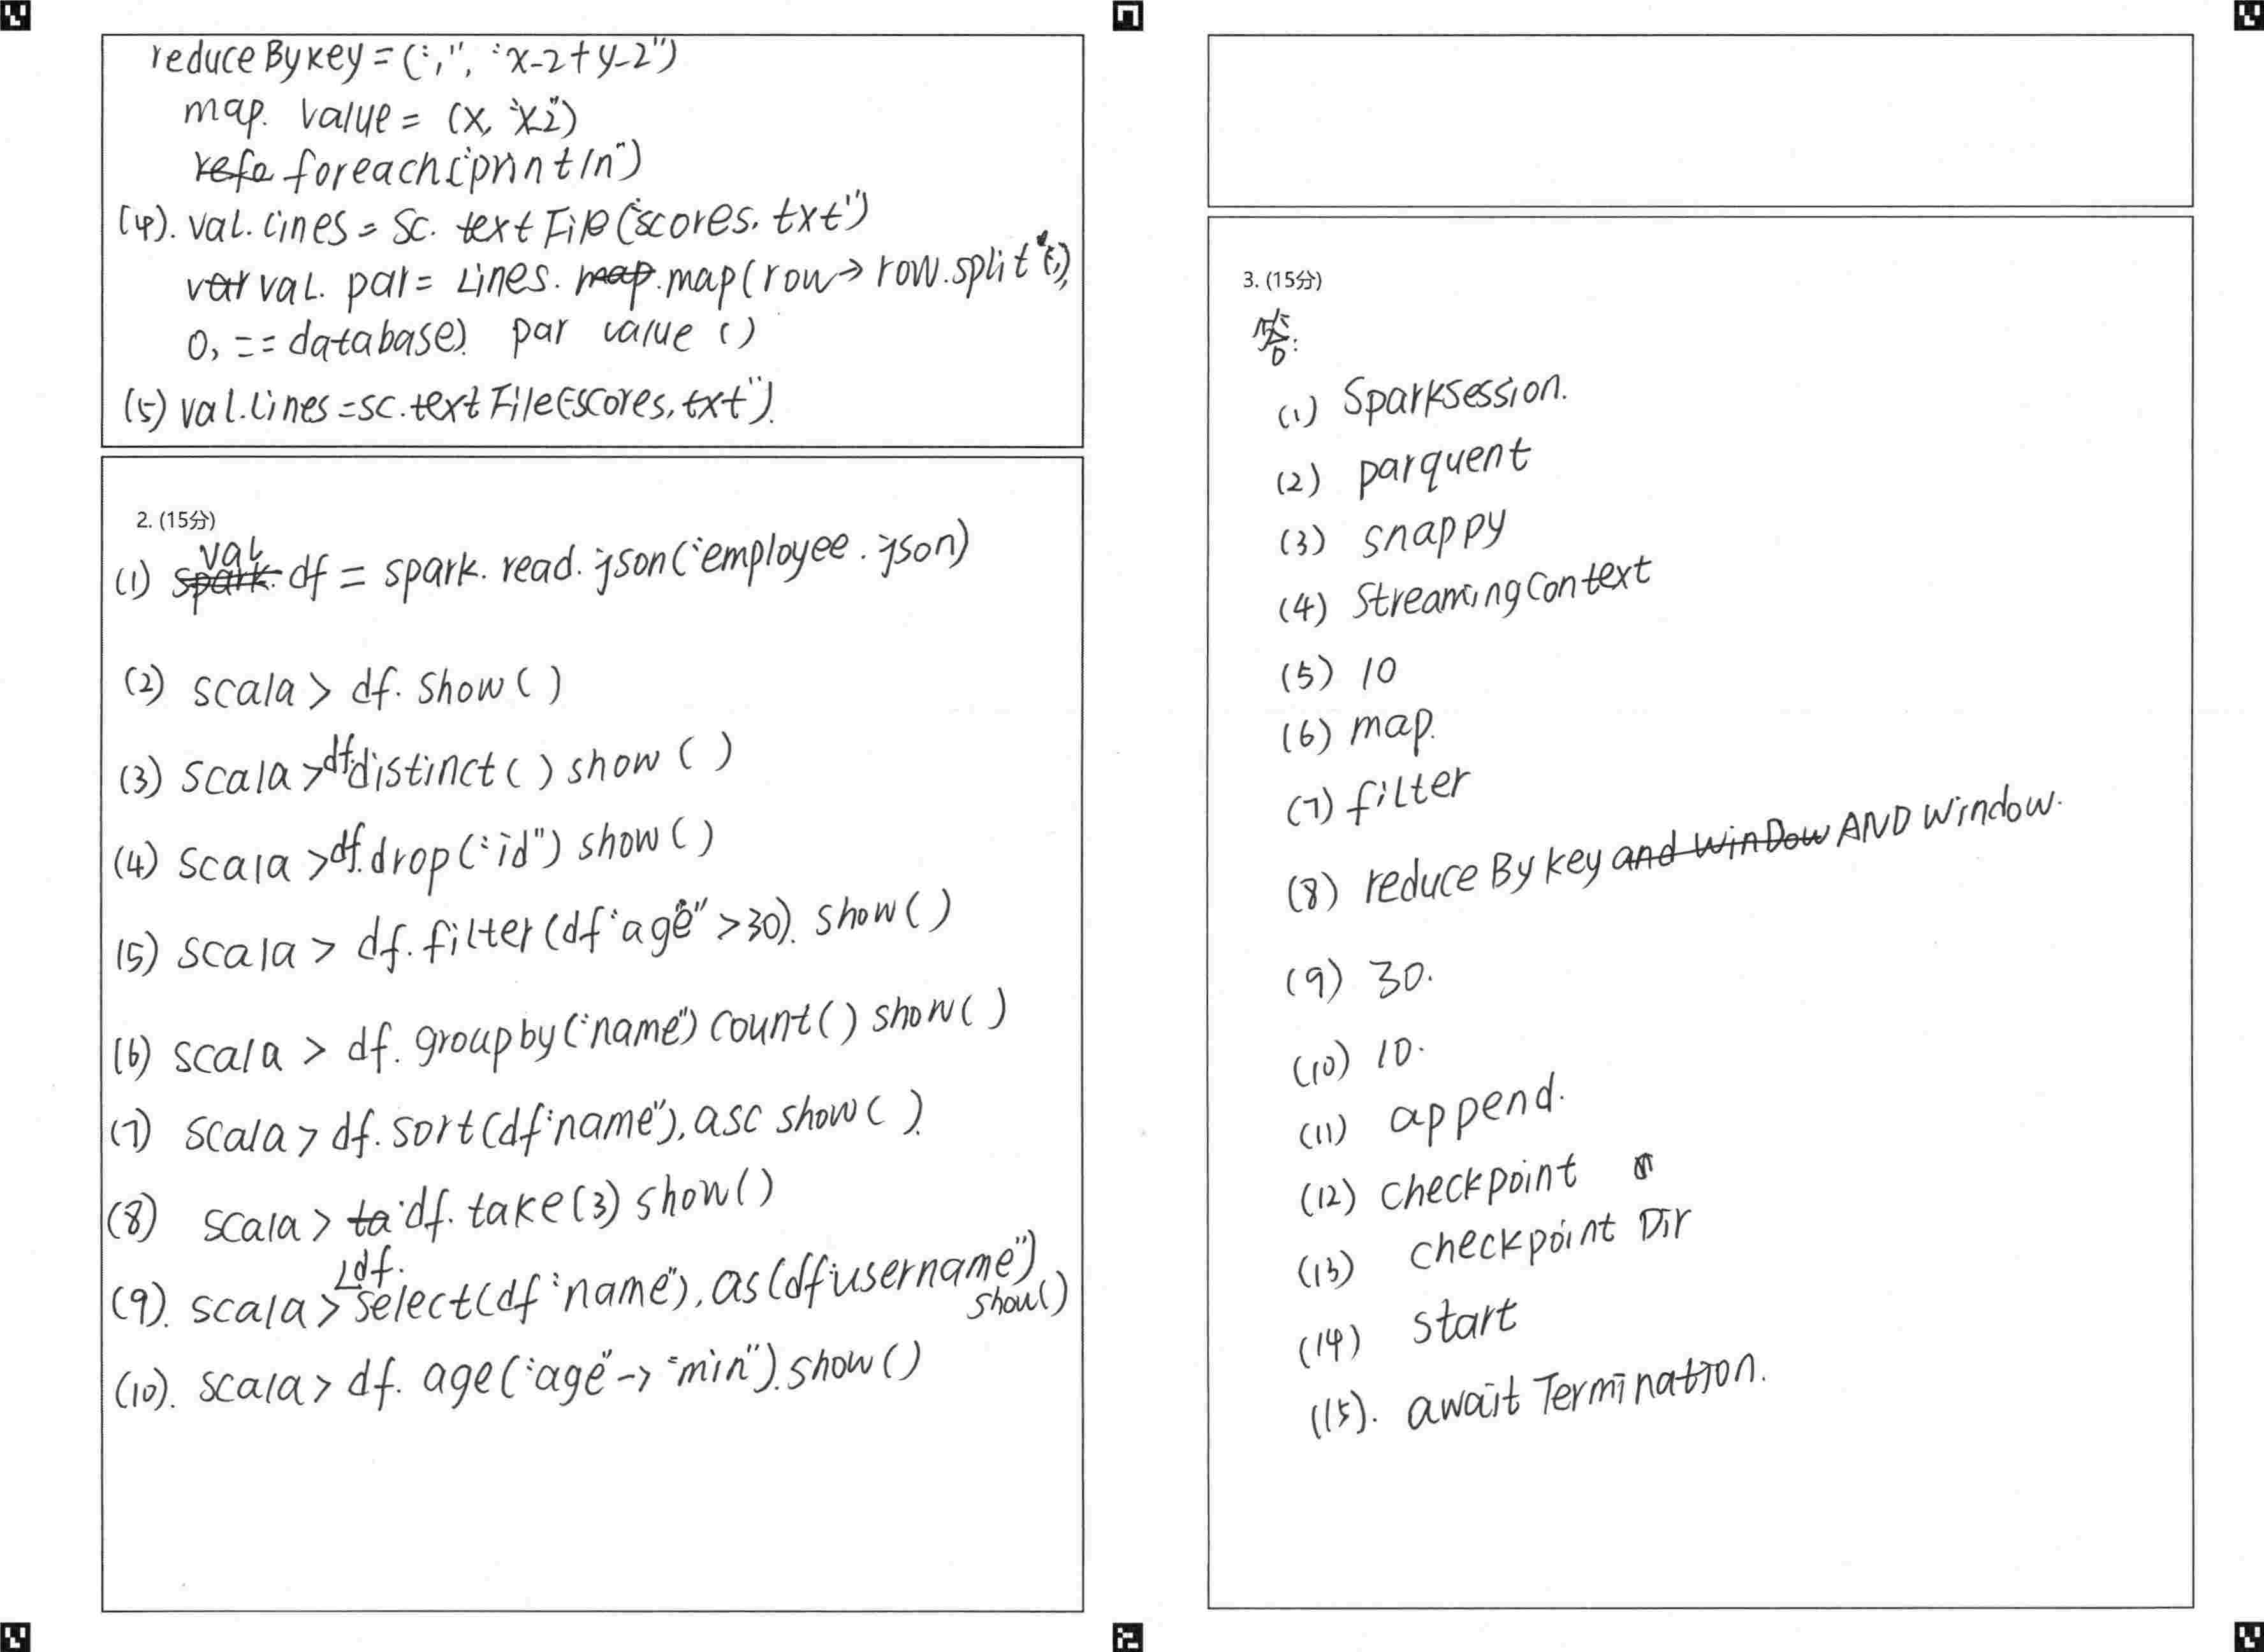 reduceBykey=(",", "x-2+y-2")
map. value = (x, "x2")
refo foreach("println")
(4). val.lines = sc. textFile("scores.txt")
var val. par = Lines. map.map(row→row.split","(),
0, == database). par value ()
(5) val.lines=sc.textFile("scores,txt").
2. (15分)
(1) spark. val df = spark. read. json("employee.json)
(2) scala> df. show()
(3) scala>df.distinct() show()
(4) scala>df.drop("id") show()
(5) scala> df.filter(df"age">30). show()
(6) scala> df. groupby("name") count() show()
(7) scala> df. sort(df"name"), asc show().
(8) scala> ta df. take(3) show()
(9). scala> df. select(df"name"), as(df"username")
show()
(10). scala> df. age("age"->"min").show()
3. (15分)
答:
(1) Sparksession.
(2) parquent
(3) snappy
(4) StreamingContext
(5) 10
(6) map.
(7) filter
(8) reduceBykey and WinDow AND Window.
(9) 30.
(10) 10.
(11) append.
(12) checkpoint
(13) checkpoint Dir
(14) start
(15). await Termination.